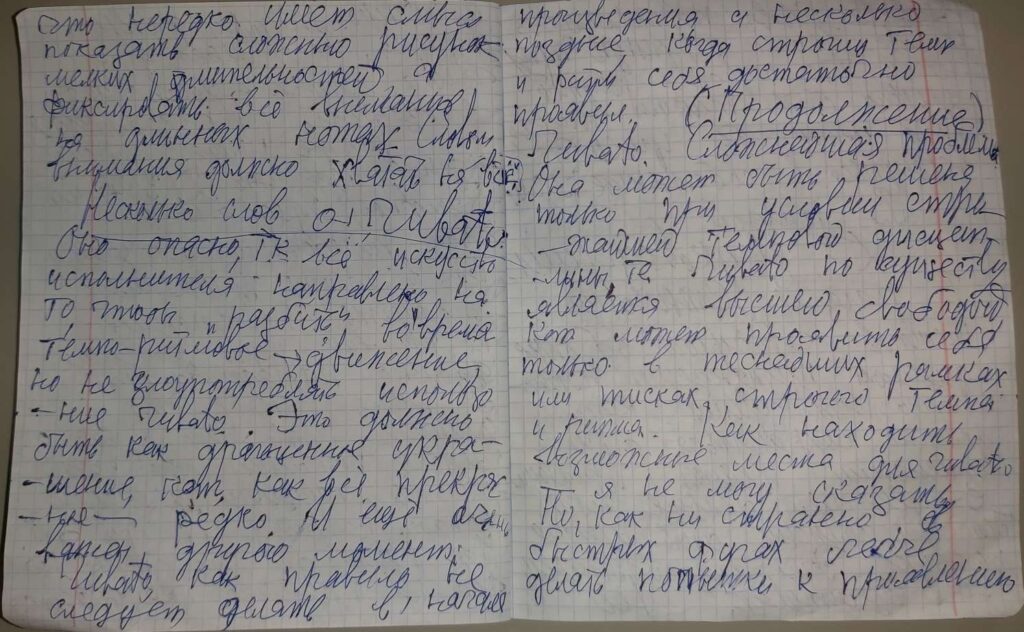 это нередко имет смысл
показать сложный рисунок
мелких длительностей а
фиксировать всё внимание
на длинных нотах. Словом
внимания должно хватать на всё.
Несколько слов о Rubato.
Оно опасно, тк всё искусство
исполнителя направлено на
то чтобы и разбить во время
темпо-ритмовое → движение,
но не злоупотреблять использо
-ние rubato. Это должено
быть как драгоценное укра-
-шение, кот, как всё прекрас
-ное — редко. И ещё очень
важен другой момент:
Rubato, как правило не
следует делать в начале
произведения а несколько
позднее когда строгий темп
и ритм себя достаточно
проявил. (Продолжение)
Rubato. Сложнейшая проблема.
Она может быть решена
только при условии стро
-жайшей темповой дисцип
-лины, те Rubato по существу
является высшей свободой
кот может проявить себя
только в теснейших рамках
или тисках строгого темпа
и ритма. Как находить
возможные места для rubato
я не могу сказать
Но, как ни странно в
быстрых фугах легче
делать попытки к проявлению